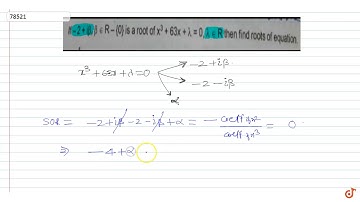 78521
-2 + iβ, β ∈ R – {0} is a root of x³ + 63x + λ = 0, λ ∈ R then find roots of equation.
x³ + 63x + λ = 0
-2 + iβ
-2 - iβ
α
SOR = -2 + iβ - 2 - iβ + α = - coeff x² / coeff x³ = 0
⇒ -4 + α